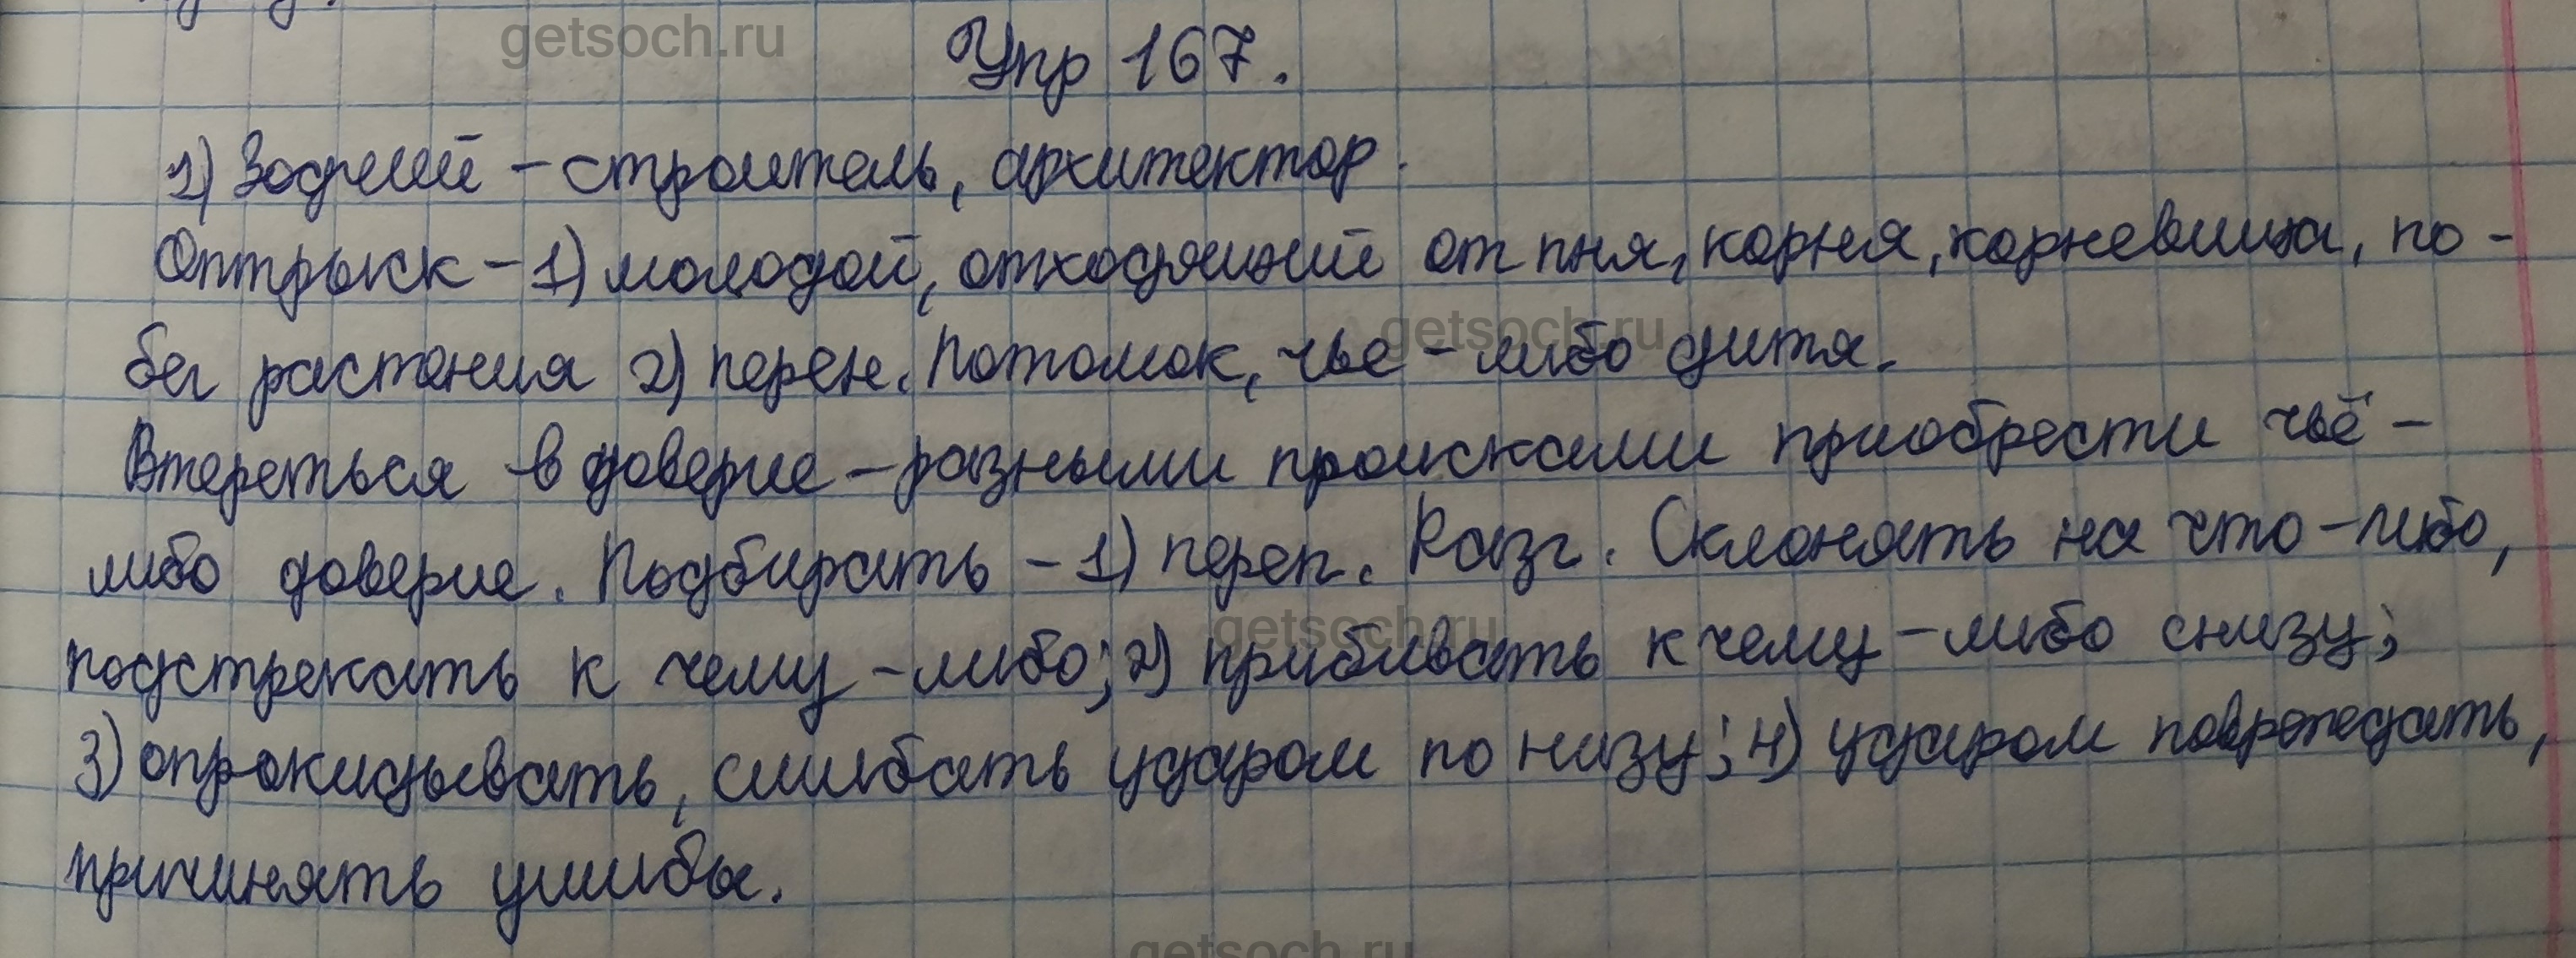 getsoch.ru
Упр 167.
1) Зодчий – строитель, архитектор.
– 1) молодой, отходящий от пня, корня, корневища, по-
бег растения 2) перен. Потомок, чье-либо дитя.
Втереться в доверие – разными происками приобрести чьё-
getsoch.ru
либо доверие. Подбирать – 1) переп. Разг. Склонять на что-либо,
подстрекать к чему-либо; 2) прибивать к чему-либо снизу;
getsoch.ru
3) опрокидывать, сшибать ударом по низу; 4) ударом повреждать,
причинять ушибы.
getsoch.ru